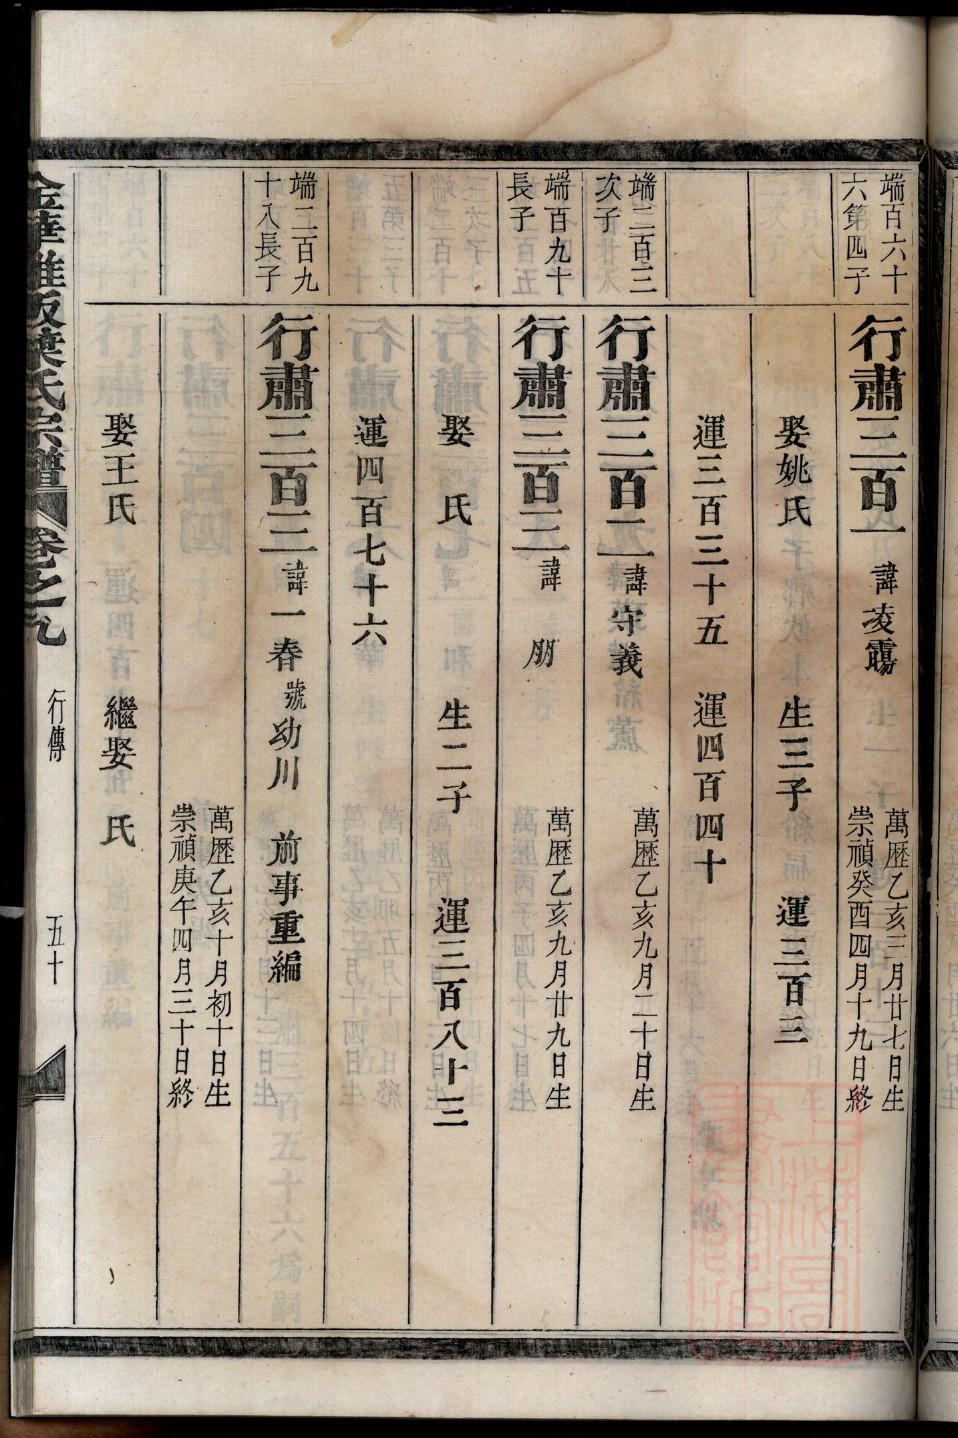 端百六十
六第四子
行肅三百一
諱凌霿
萬歷乙亥三月廿七日生
崇禎癸酉四月十九日終
娶姚氏 生三子 運三百三
運三百三十五 運四百四十
端二百三
次子
行肅三百二
諱守義
萬歷乙亥九月二十日生
端百九十
長子
行肅三百二
諱 朋
萬歷乙亥九月廿九日生
娶 氏 生二子 運三百八十三
運四百七十六
端二百九
十八長子
行肅三百三
諱一春號幼川 前事重編
萬歷乙亥十月初十日生
崇禎庚午四月三十日終
娶王氏 繼娶 氏
葉氏宗譜 卷之九 行傳 五十